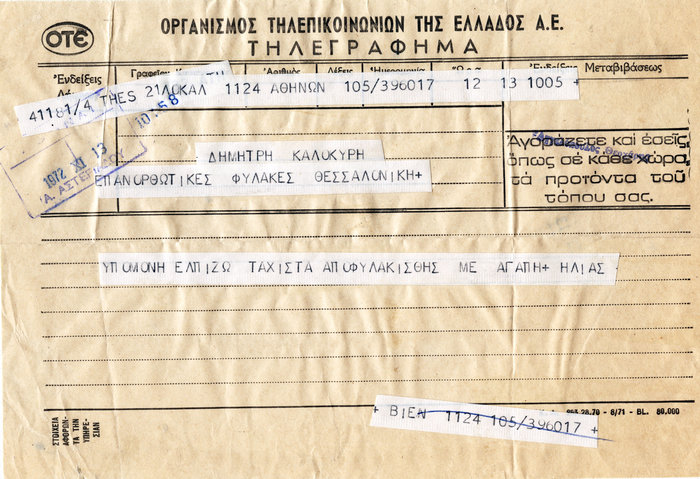 ΟΤΕ
ΟΡΓΑΝΙΣΜΟΣ ΤΗΛΕΠΙΚΟΙΝΩΝΙΩΝ ΤΗΣ ΕΛΛΑΔΟΣ Α.Ε.
ΤΗΛΕΓΡΑΦΗΜΑ
Ἐνδείξεις Μεταβιβάσεως
41181/4 THES 21ΛΟΚΑΛ 1124 ΑΘΗΝΩΝ 105/396017 12 13 1005 +
10.58
1972 XI 13
Α. ΑΣΤΕΡΙΑΔΟΥ
ΔΗΜΗΤΡΗ ΚΑΛΟΚΥΡΗ
ΕΠΑΝΟΡΘΩΤΙΚΕΣ ΦΥΛΑΚΕΣ ΘΕΣΣΑΛΟΝΙΚΗ+
Ἀγοράζετε καὶ ἐσεῖς,
ὅπως σὲ κάθε χώρα,
τὰ προϊόντα τοῦ
τόπου σας.
ΥΠΟΜΟΝΗ ΕΛΠΙΖΩ ΤΑΧΙΣΤΑ ΑΠΟΦΥΛΑΚΙΣΘΗΣ ΜΕ ΑΓΑΠΗ+ ΗΛΙΑΣ
ΣΤΟΙΧΕΙΑ
ΑΦΟΡΩΝ-
ΤΑ ΤΗΝ
ΥΠΗΡΕ-
ΣΙΑΝ
28.70 - 8/71 - BL. 80.000
+ ΒΙΕΝ 1124 105/396017 +